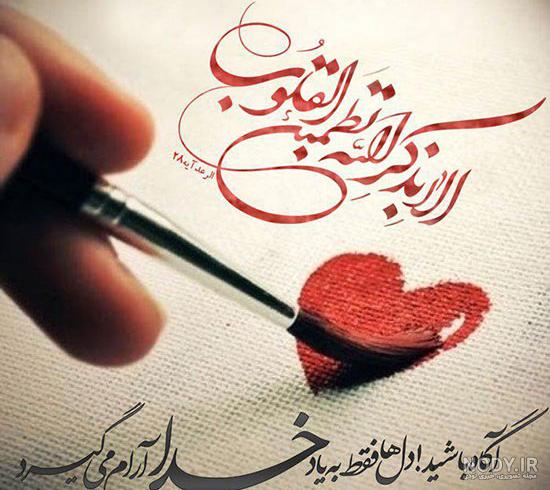 الا بذكر الله تطمئن القلوب
الرعد آیه ۲۸
آگاه باشید! دل‌ها فقط به یاد خدا آرام می گیرد
NODY.IR
مجله تصویری، خبری نودی